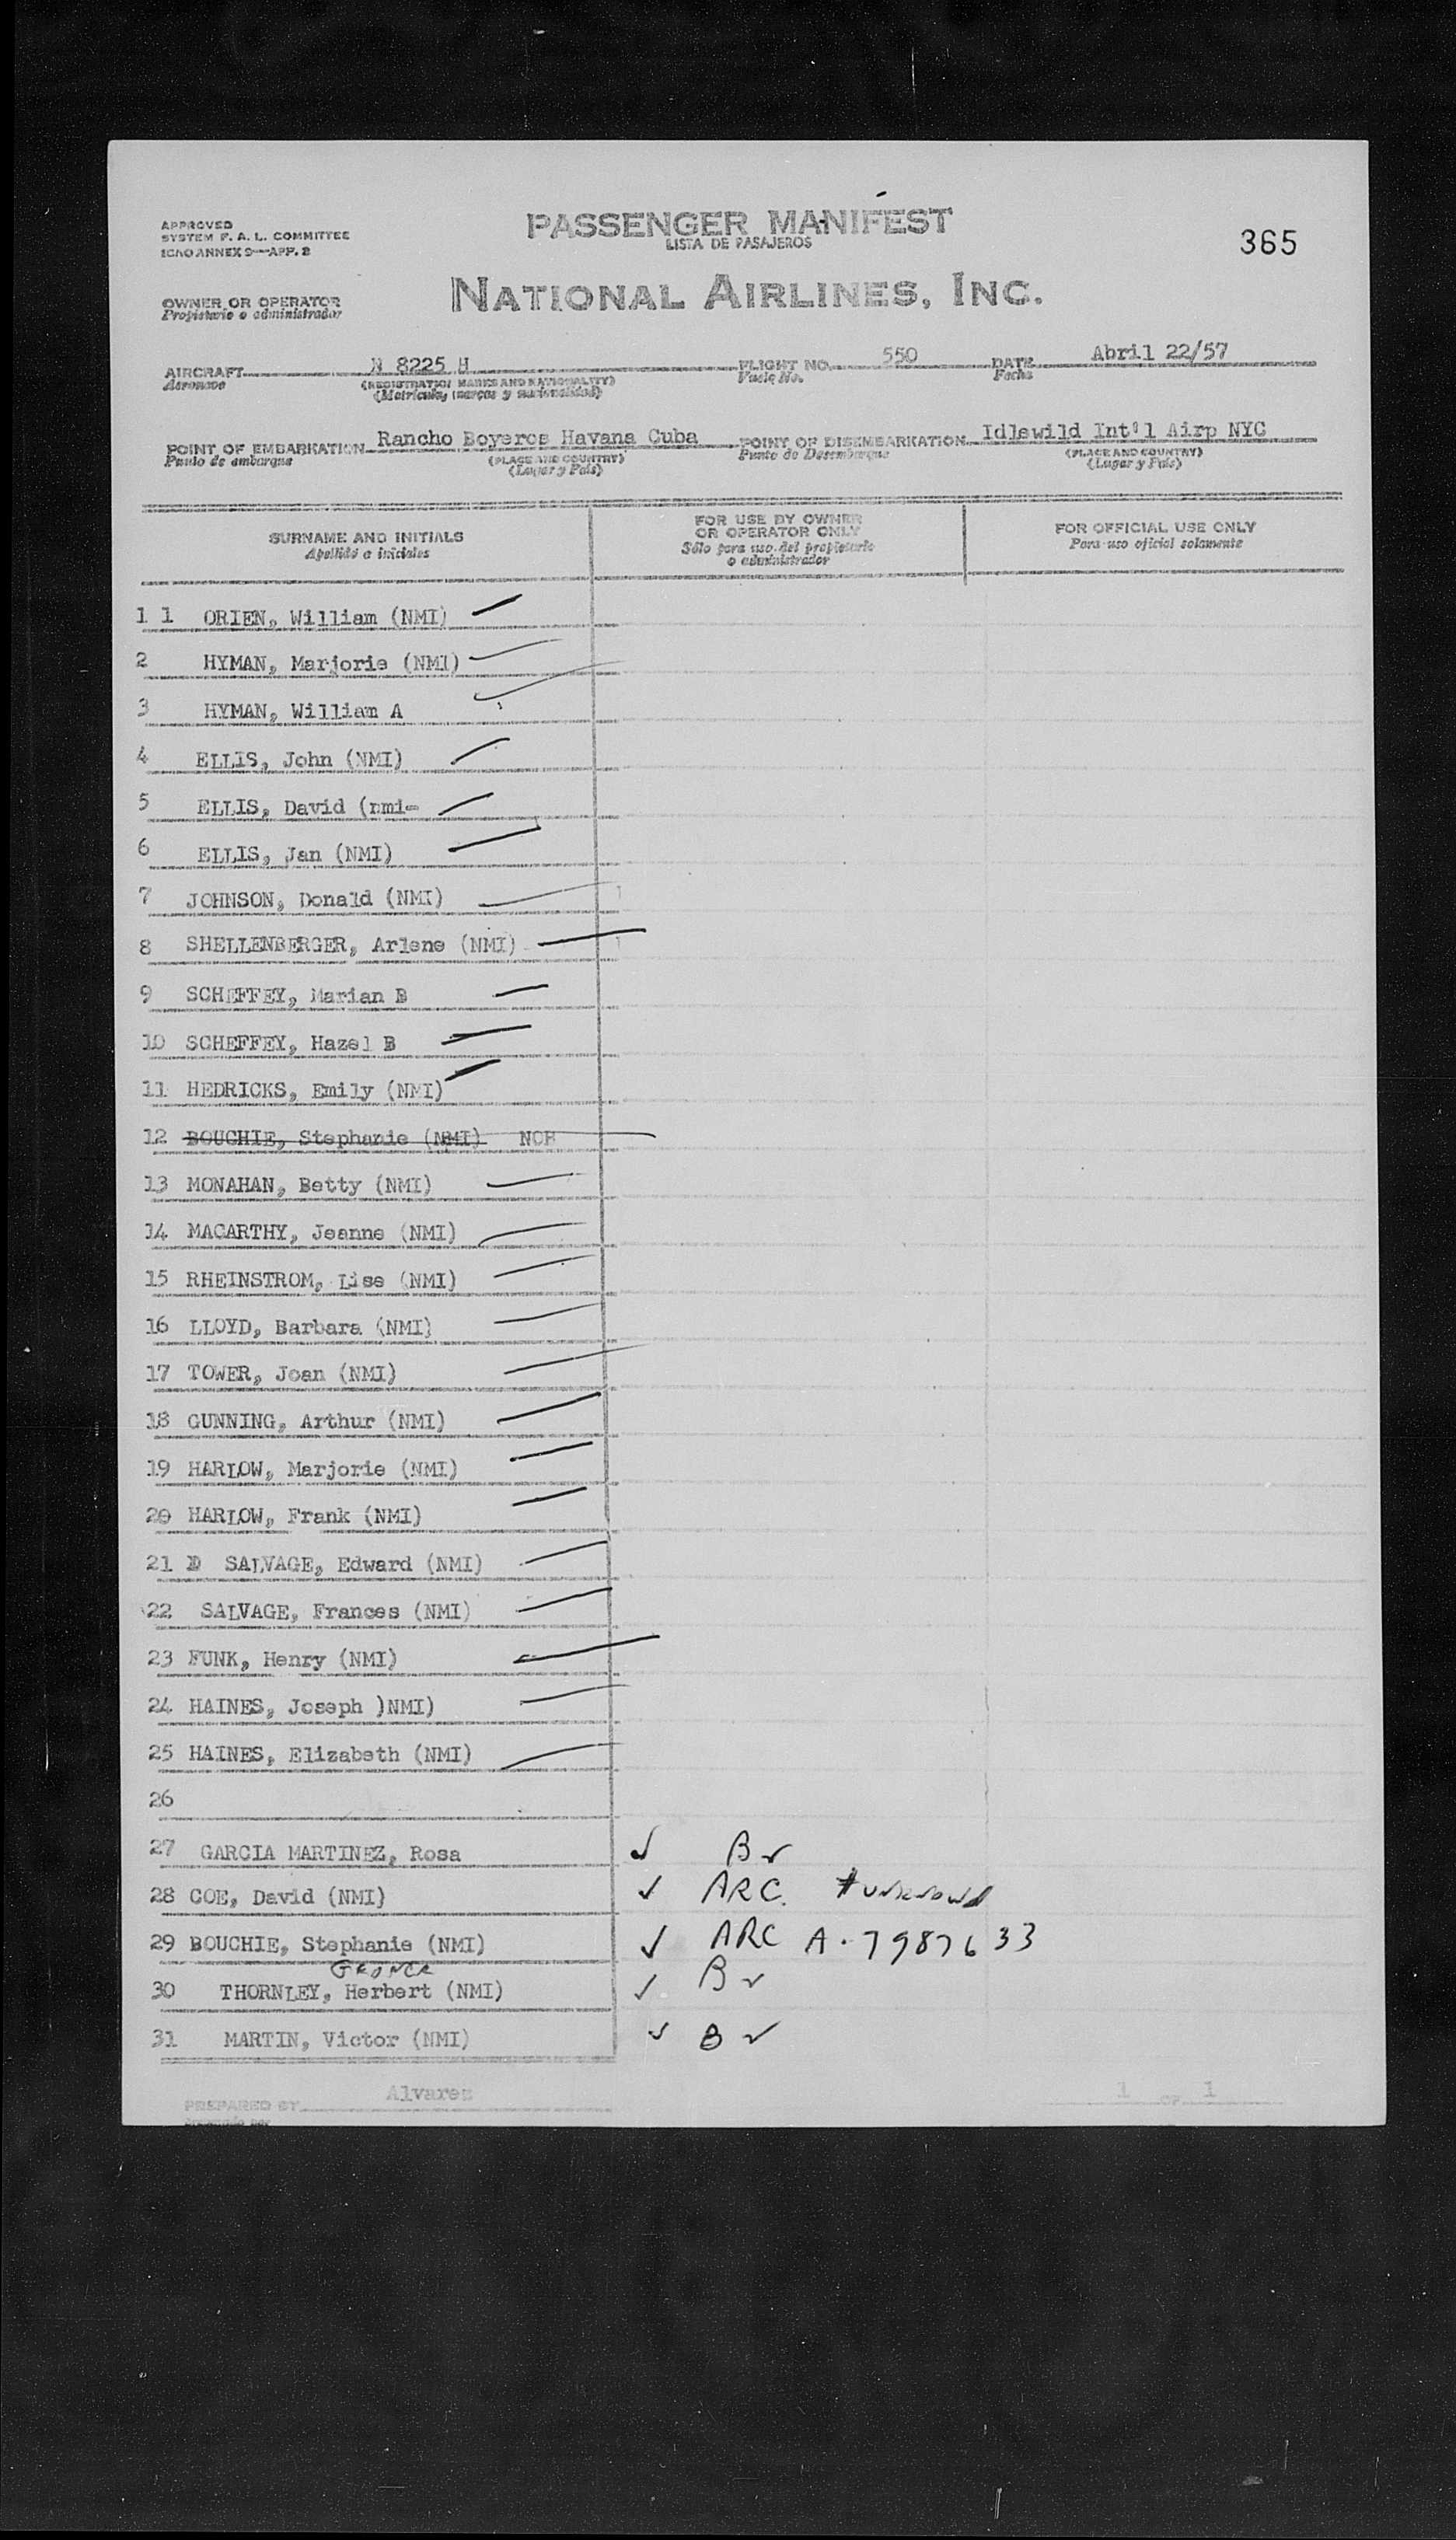 APPROVED
SYSTEM F. A. L. COMMITTEE
ICAO ANNEX 9—APP. 2
PASSENGER MANIFEST
LISTA DE PASAJEROS
365
OWNER OR OPERATOR
Propietario o administrador
NATIONAL AIRLINES, INC.
AIRCRAFT N 8225 H FLIGHT NO. 550 DATE Abril 22/57
Aeronave (REGISTRATION MARKS AND NATIONALITY) Vuelo No. Fecha
(Matricula, marcas y nacionalidad)
POINT OF EMBARKATION Rancho Boyeros Havana Cuba POINT OF DISEMBARKATION Idlewild Int'l Airp NYC
Punto de embarque (PLACE AND COUNTRY) Punto de Desembarque (PLACE AND COUNTRY)
(Lugar y País) (Lugar y País)
SURNAME AND INITIALS
Apellido e iniciales
FOR USE BY OWNER
OR OPERATOR ONLY
Sólo para uso del propietario
o administrador
FOR OFFICIAL USE ONLY
Para uso oficial solamente
1 1 ORIEN, William (NMI)
2 HYMAN, Marjorie (NMI)
3 HYMAN, William A
4 ELLIS, John (NMI)
5 ELLIS, David (nmi=
6 ELLIS, Jan (NMI)
7 JOHNSON, Donald (NMI)
8 SHELLENBERGER, Arlene (NMI)
9 SCHEFFEY, Marian B
10 SCHEFFEY, Hazel B
11 HEDRICKS, Emily (NMI)
12 BOUCHIE, Stephanie (NMI) NOB
13 MONAHAN, Betty (NMI)
14 MACARTHY, Jeanne (NMI)
15 RHEINSTROM, Lise (NMI)
16 LLOYD, Barbara (NMI)
17 TOWER, Joan (NMI)
18 GUNNING, Arthur (NMI)
19 HARLOW, Marjorie (NMI)
20 HARLOW, Frank (NMI)
21 D SALVAGE, Edward (NMI)
22 SALVAGE, Frances (NMI)
23 FUNK, Henry (NMI)
24 HAINES, Joseph )NMI)
25 HAINES, Elizabeth (NMI)
26
27 GARCIA MARTINEZ, Rosa ✓ B ✓
28 COE, David (NMI) ✓ ARC. # unknown
29 BOUCHIE, Stephanie (NMI) ✓ ARC A-7987633
30 THORNLEY, Herbert (NMI) ✓ B ✓
31 MARTIN, Victor (NMI) ✓ B ✓
PREPARED BY Alvarez 1 OF 1